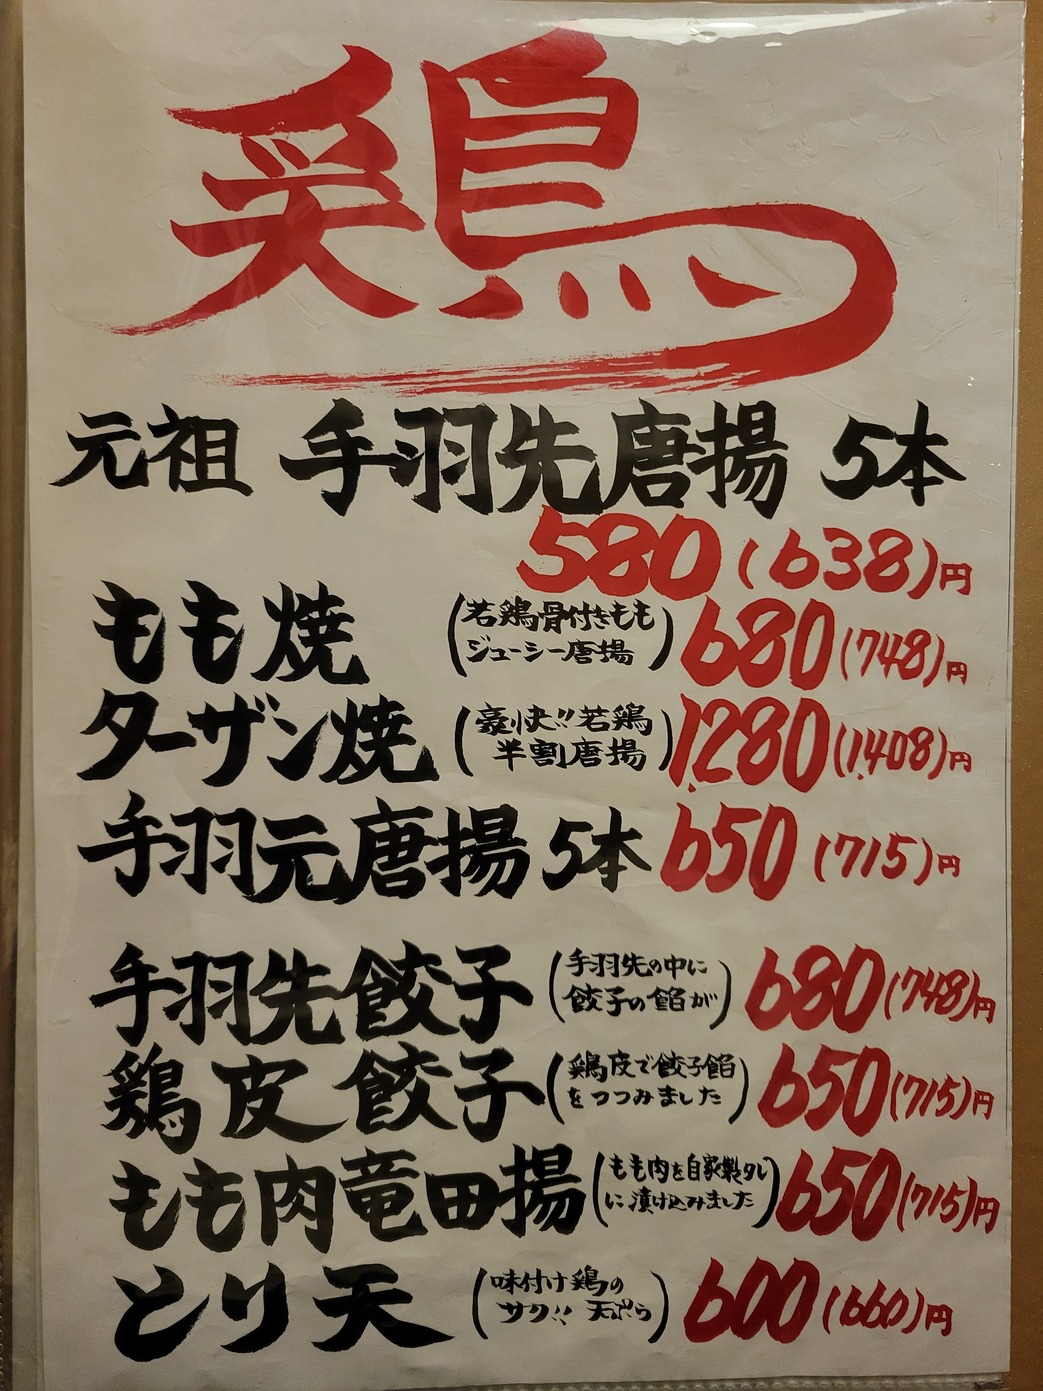 鶏
元祖 手羽先唐揚 5本
580(638)円
もも焼 (若鶏骨付きもも ジューシー唐揚) 680(748)円
ターザン焼 (豪快!!若鶏 半割唐揚) 1,280(1,408)円
手羽元唐揚 5本 650(715)円
手羽先餃子 (手羽先の中に 餃子の餡が) 680(748)円
鶏皮餃子 (鶏皮で餃子餡 をつつみました) 650(715)円
もも肉竜田揚 (もも肉を自家製タレ に漬け込みました) 650(715)円
とり天 (味付け鶏の サク!! 天ぷら) 600(660)円